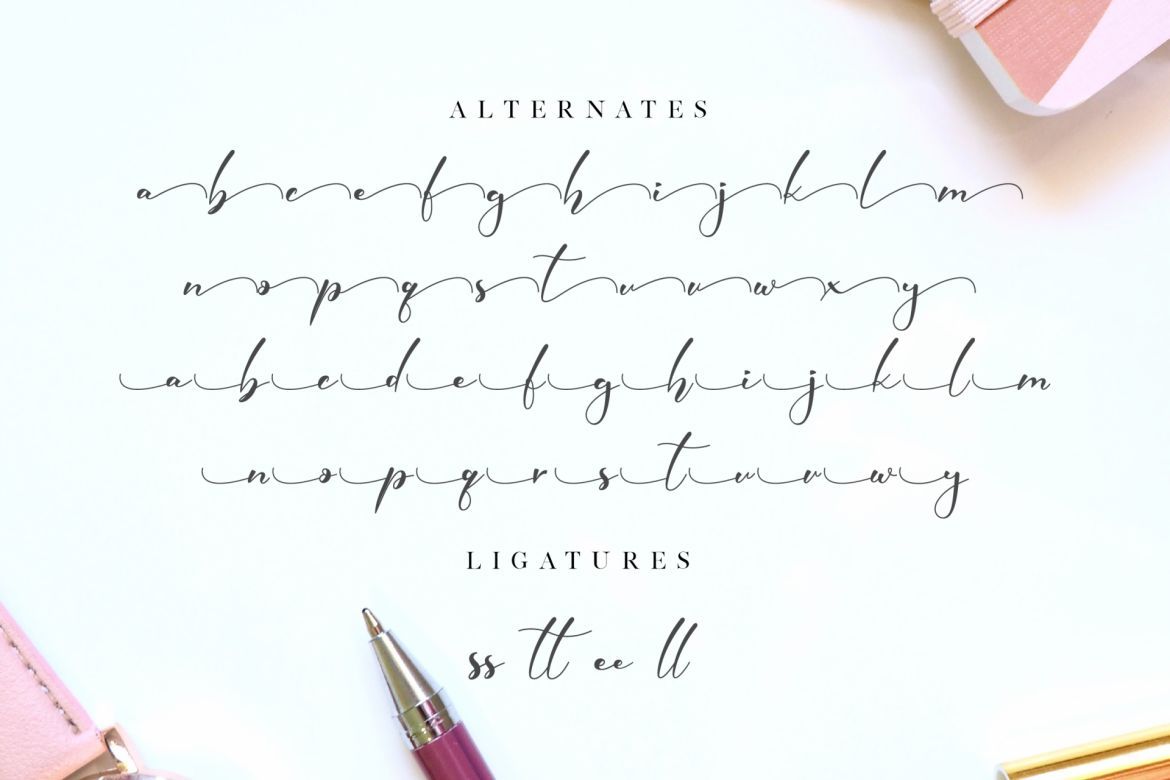 ALTERNATES
a b c e f g h i j k l m
n o p q s t u v w x y
a b c d e f g h i j k l m
n o p q r s t u v w y
LIGATURES
ss tt ee ll